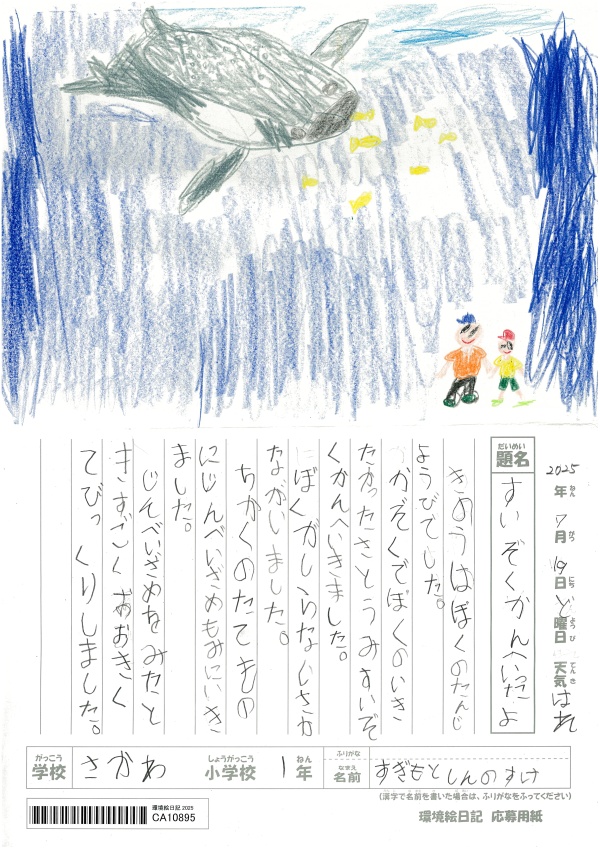 2025年ねん7月がつ19日にちど曜日ようび天気てんきはれ
題名だいめい すいぞくかんへいったよ
きょうはぼくのたんじ
ょうびでした。
かぞくでぼくのいき
たかったさとうみすいぞ
くかんへいきました。
にぼくがしらないさか
ながいました。
ちかくのたてもの
にじんべいざめもみにいき
ました。
じんべいざめをみたと
きすごくおおきく
てびっくりしました。
学校がっこう さかわ 小学校しょうがっこう 1年ねん
ふりがな
名前なまえ すぎもとしんのすけ
(漢字で名前を書いた場合は、ふりがなをふってください)
環境絵日記 応募用紙
環境絵日記 2025
CA10895